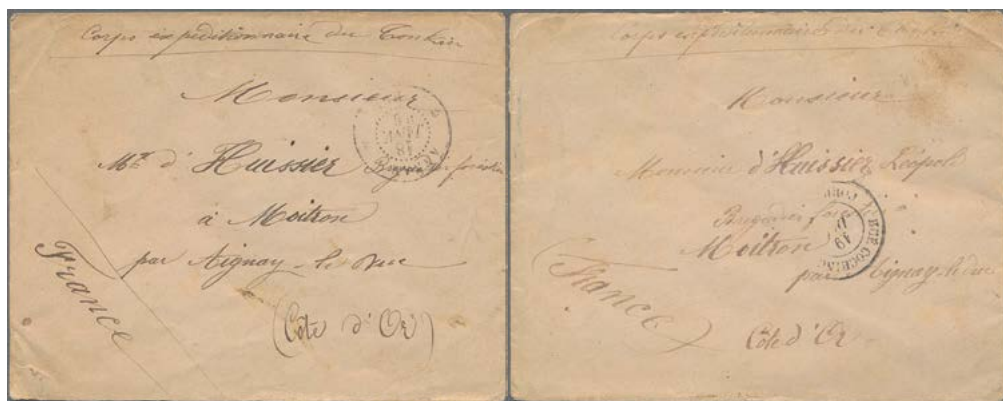 Corps expeditionnaire du Tonkin
Monsieur
Mr d'Huissier Brigadier forestier
à Moitron
par Aignay-le Duc
(Côte d'Or)
France
Corps expeditionnaire du Tonkin
Monsieur
Monsieur d'Huissier Léopold
Brigadier
Moitron
par Aignay-le duc
Côte d'Or
(France)